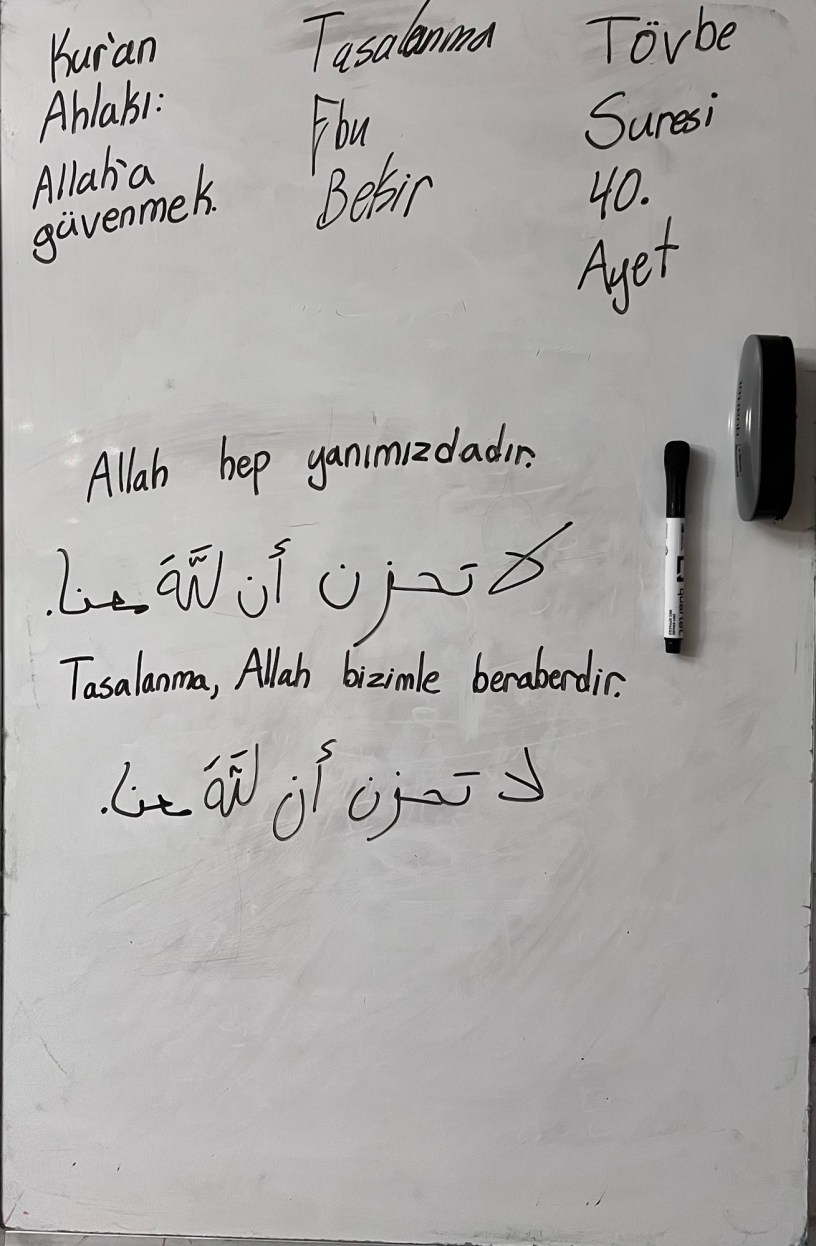 Kur'an
Ahlakı:
Allah'a
güvenmek.
Tasalanma
Ebu
Bekir
Tövbe
Suresi
40.
Ayet
Allah hep yanımızdadır.
لا تحزن أن للّٰهَ معنا.
Tasalanma, Allah bizimle beraberdir.
لا تحزن أن للّٰهَ معنا.